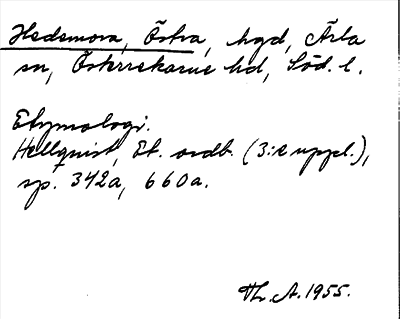 Hedemora, Östra, hgd, Ärla
sn, Österrekarne hd, Söd. l.
Etymologi.
Hellquist, Et. ordb. (3:e uppl.),
sp. 342a, 660a.
Th. A. 1955.